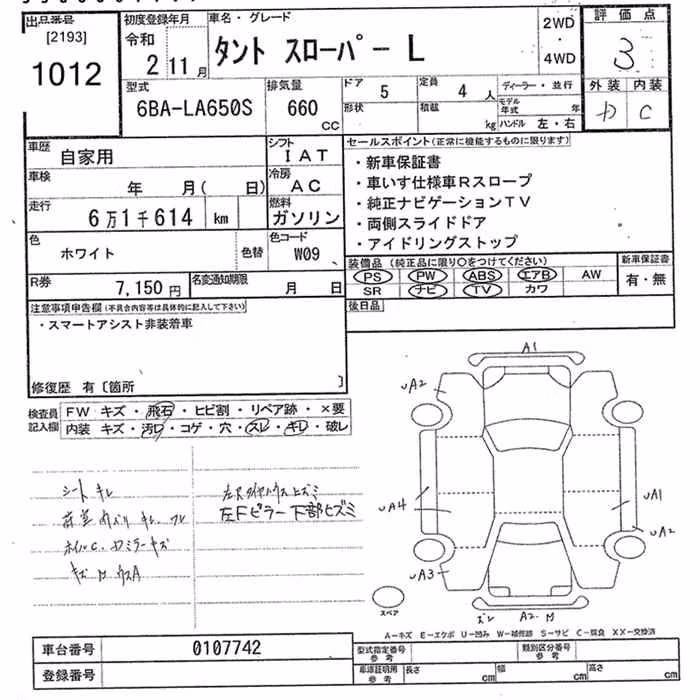 出品番号
[2193]
1012
初度登録年月
令和
2 11月
車名・グレード
タント スローパーL
2WD
・
4WD
評価点
3
外装 内装
C
型式
6BA-LA650S
排気量
660
CC
ドア 5
形状
定員 4 人
積載
kg
ディーラー・並行
モデル年式 年
ハンドル 左・右
車歴
自家用
シフト
IAT
車検
年 月( 日)
冷房
AC
走行
6万1千614 km
燃料
ガソリン
色
ホワイト
色替
色コード
W09
R券
7,150円
名変通知期限
月 日
セールスポイント(正常に機能するものに限ります)
・新車保証書
・車いす仕様車Rスロープ
・純正ナビゲーションTV
・両側スライドドア
・アイドリングストップ
装備品(純正品に限り○をつけてください)
PS PW ABS エアB AW
SR ナビ TV カワ
新車保証書
有・無
後日品
注意事項申告欄(不具合内容等は具体的に記入して下さい)
・スマートアシスト非装着車
修復歴 有〔箇所 〕
検査員
記入欄
FW キズ・飛石・ヒビ割・リペア跡・×要
内装 キズ・汚レ・コゲ・穴・スレ・キレ・破レ
シートキレ
左Fピラー下部ヒズミ
A1
UA2
UA4
UA1
UA2
UA3
A2.M
スペア
A－キズ E－エクボ U－凹み W－補修跡 S－サビ C－腐食 XX－交換済
車台番号
0107742
登録番号
型式指定番号
参考
類別区分番号
参考
車庫証明用
参考
長さ cm
幅 cm
高さ cm